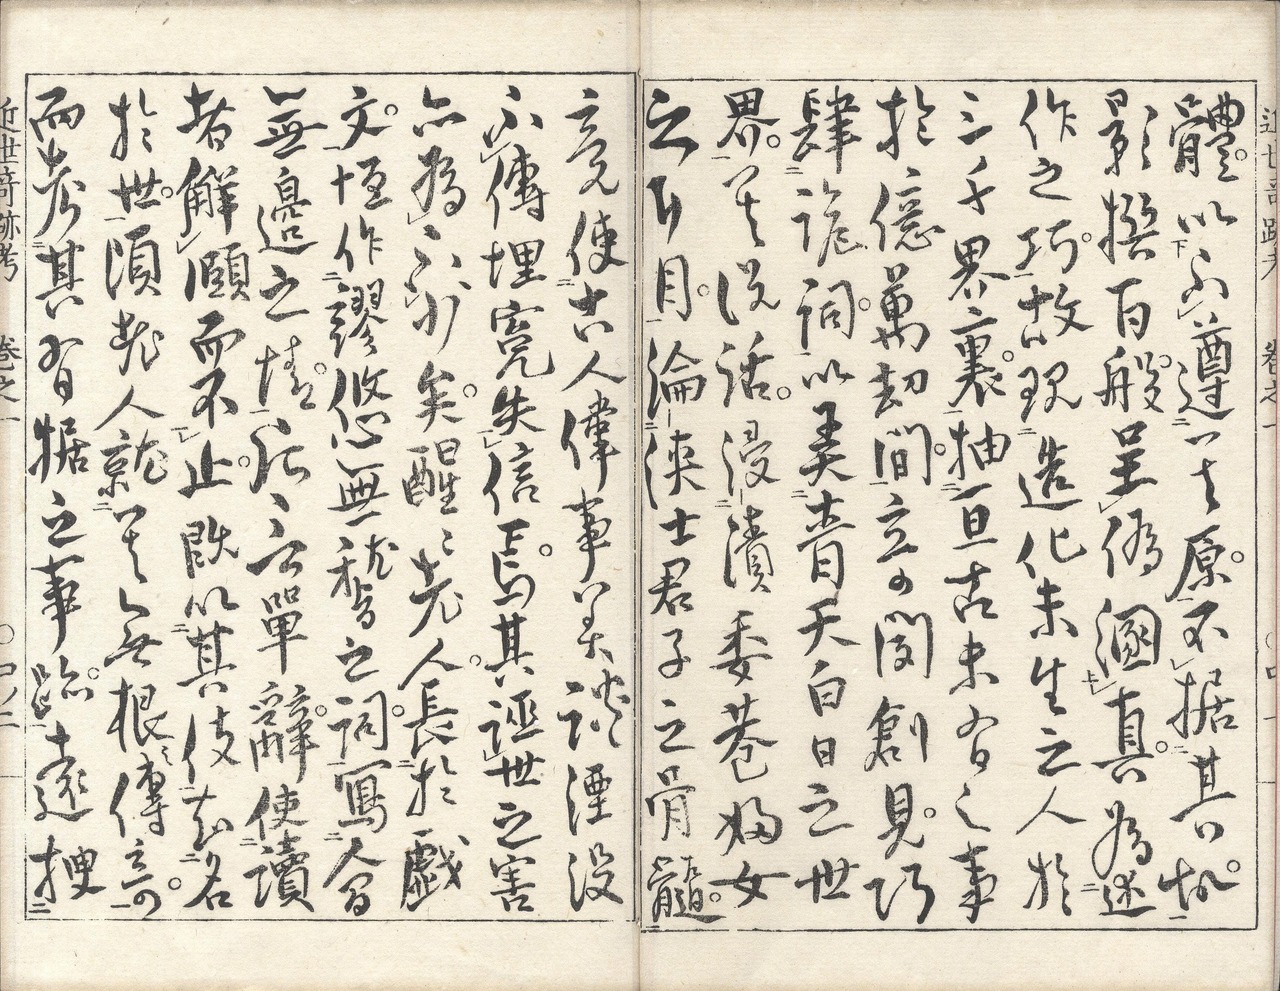 體骨以不遵其原不据其故
影撰百般呈偽溷真為述
作之巧故現造化未生之人於
三千界裏抽亘古未有之事
於億萬劫間立可聞創見巧
肆詭詞以美青天白日之世
界其説話浸漬委巷婦女
之耳目淪浹士君子之骨髓
竟使古人偉事美談湮没
不傳埋寃失信焉其誣世之害
亦為不少矣醒醒老人長於戯
文恆作謬悠無稽之詞寫人間
無邉之情 單辭使讀
者解頤而不止既以其伎知名
於世頃哉人就其無根傳
而考其有据之事跡遠捜
近世奇跡考 巻之一